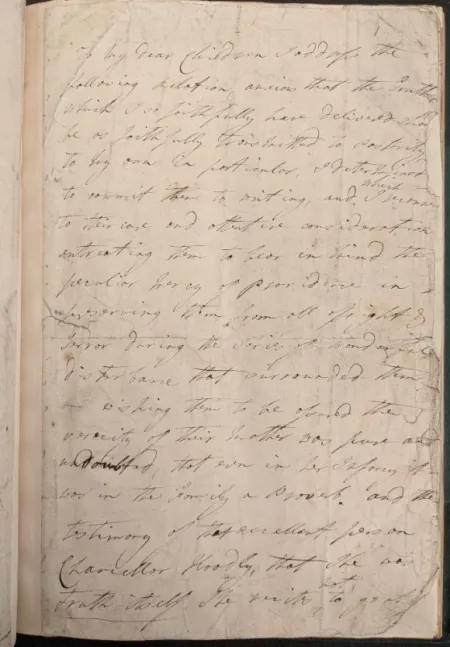 To my dear Children I address the
following relation, anxious that the Truths
which I so faithfully have delivered shall
be as faithfully transmitted to posterity
to my own in particular, I determined
to commit them to writing, and which I recommend
to their care and attentive consideration
entreating them to bear in mind the
peculiar mercy of providence in
preserving them from all afright &
horror during the series of wonderful
disturbance that surrounded them
wishing them to be assured the
veracity of their mother was pure and
undoubted, that even in her Infancy it
was in the family a Proverb. and the
testimony of that excellent person
Chancellor Hoadly, that She was
truth itself She writes not to